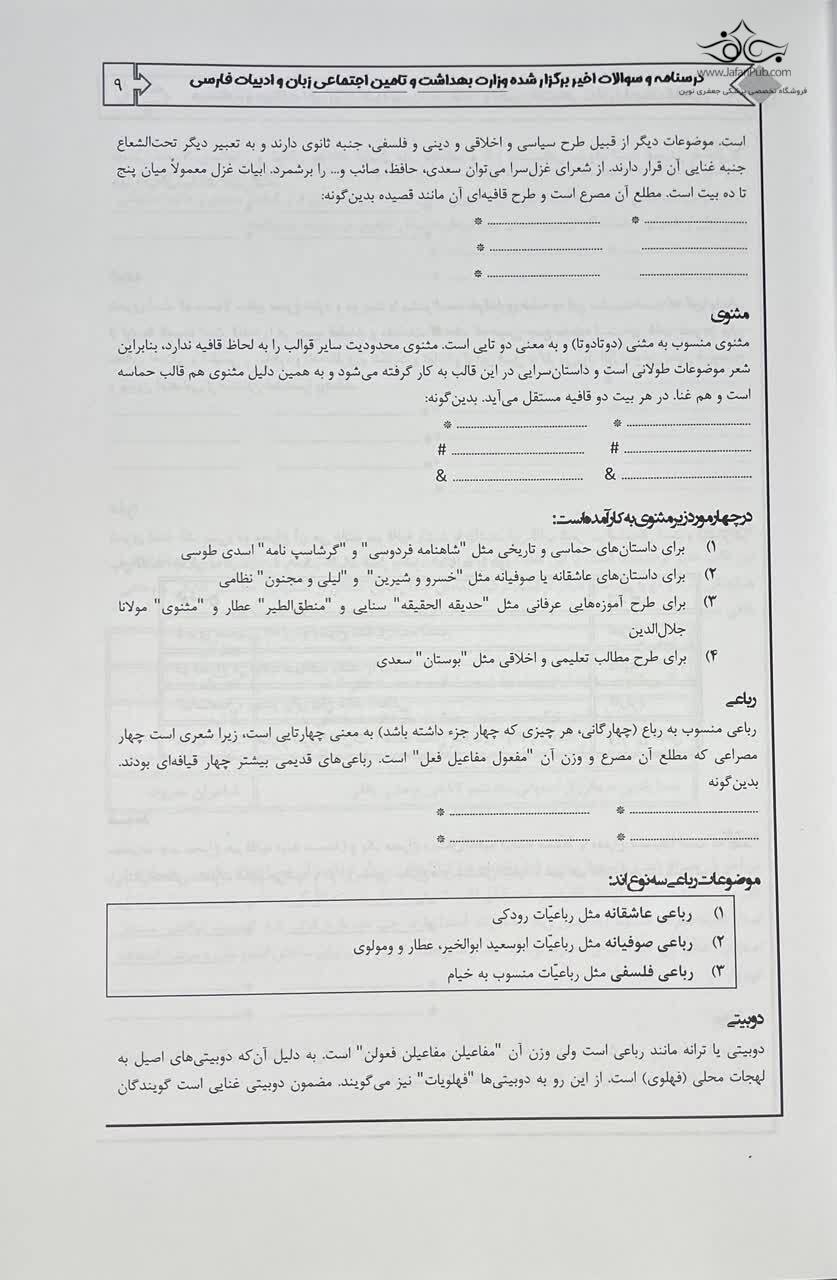 www.JafariPub.com
فروشگاه تخصصی پزشکی جعفری نوین
درسنامه و سوالات اخیر برگزار شده وزارت بهداشت و تامین اجتماعی زبان و ادبیات فارسی
۹
است. موضوعات دیگر از قبیل طرح سیاسی و اخلاقی و دینی و فلسفی، جنبه ثانوی دارند و به تعبیر دیگر تحت‌الشعاع
جنبه غنایی آن قرار دارند. از شعرای غزل‌سرا می‌توان سعدی، حافظ، صائب و... را برشمرد. ابیات غزل معمولاً میان پنج
تا ده بیت است. مطلع آن مصرع است و طرح قافیه‌ای آن مانند قصیده بدین‌گونه:
................................ * ................................ *
................................ ................................ *
................................ ................................ *
مثنوی
مثنوی منسوب به مثنی (دوتادوتا) و به معنی دو تایی است. مثنوی محدودیت سایر قوالب را به لحاظ قافیه ندارد، بنابراین
شعر موضوعات طولانی است و داستان‌سرایی در این قالب به کار گرفته می‌شود و به همین دلیل مثنوی هم قالب حماسه
است و هم غنا. در هر بیت دو قافیه مستقل می‌آید. بدین‌گونه:
................................ * ................................ *
................................ # ................................ #
................................ & ................................ &
در چهار مورد زیر مثنوی به کار آمده است:
۱) برای داستان‌های حماسی و تاریخی مثل "شاهنامه فردوسی" و "گرشاسپ نامه" اسدی طوسی
۲) برای داستان‌های عاشقانه یا صوفیانه مثل "خسرو و شیرین" و "لیلی و مجنون" نظامی
۳) برای طرح آموزه‌هایی عرفانی مثل "حدیقه الحقیقه" سنایی و "منطق‌الطیر" عطار و "مثنوی" مولانا
جلال‌الدین
۴) برای طرح مطالب تعلیمی و اخلاقی مثل "بوستان" سعدی
رباعی
رباعی منسوب به رباع (چهارگانی، هر چیزی که چهار جزء داشته باشد) به معنی چهارتایی است، زیرا شعری است چهار
مصراعی که مطلع آن مصرع و وزن آن "مفعول مفاعیل فعل" است. رباعی‌های قدیمی بیشتر چهار قیافه‌ای بودند.
بدین‌گونه
................................ * ................................ *
................................ * ................................ *
موضوعات رباعی سه نوع‌اند:
۱) رباعی عاشقانه مثل رباعیّات رودکی
۲) رباعی صوفیانه مثل رباعیّات ابوسعید ابوالخیر، عطار و ومولوی
۳) رباعی فلسفی مثل رباعیّات منسوب به خیام
دوبیتی
دوبیتی یا ترانه مانند رباعی است ولی وزن آن "مفاعیلن مفاعیلن فعولن" است. به دلیل آن‌که دوبیتی‌های اصیل به
لهجات محلی (فهلوی) است. از این رو به دوبیتی‌ها "فهلویات" نیز می‌گویند. مضمون دوبیتی غنایی است گویندگان